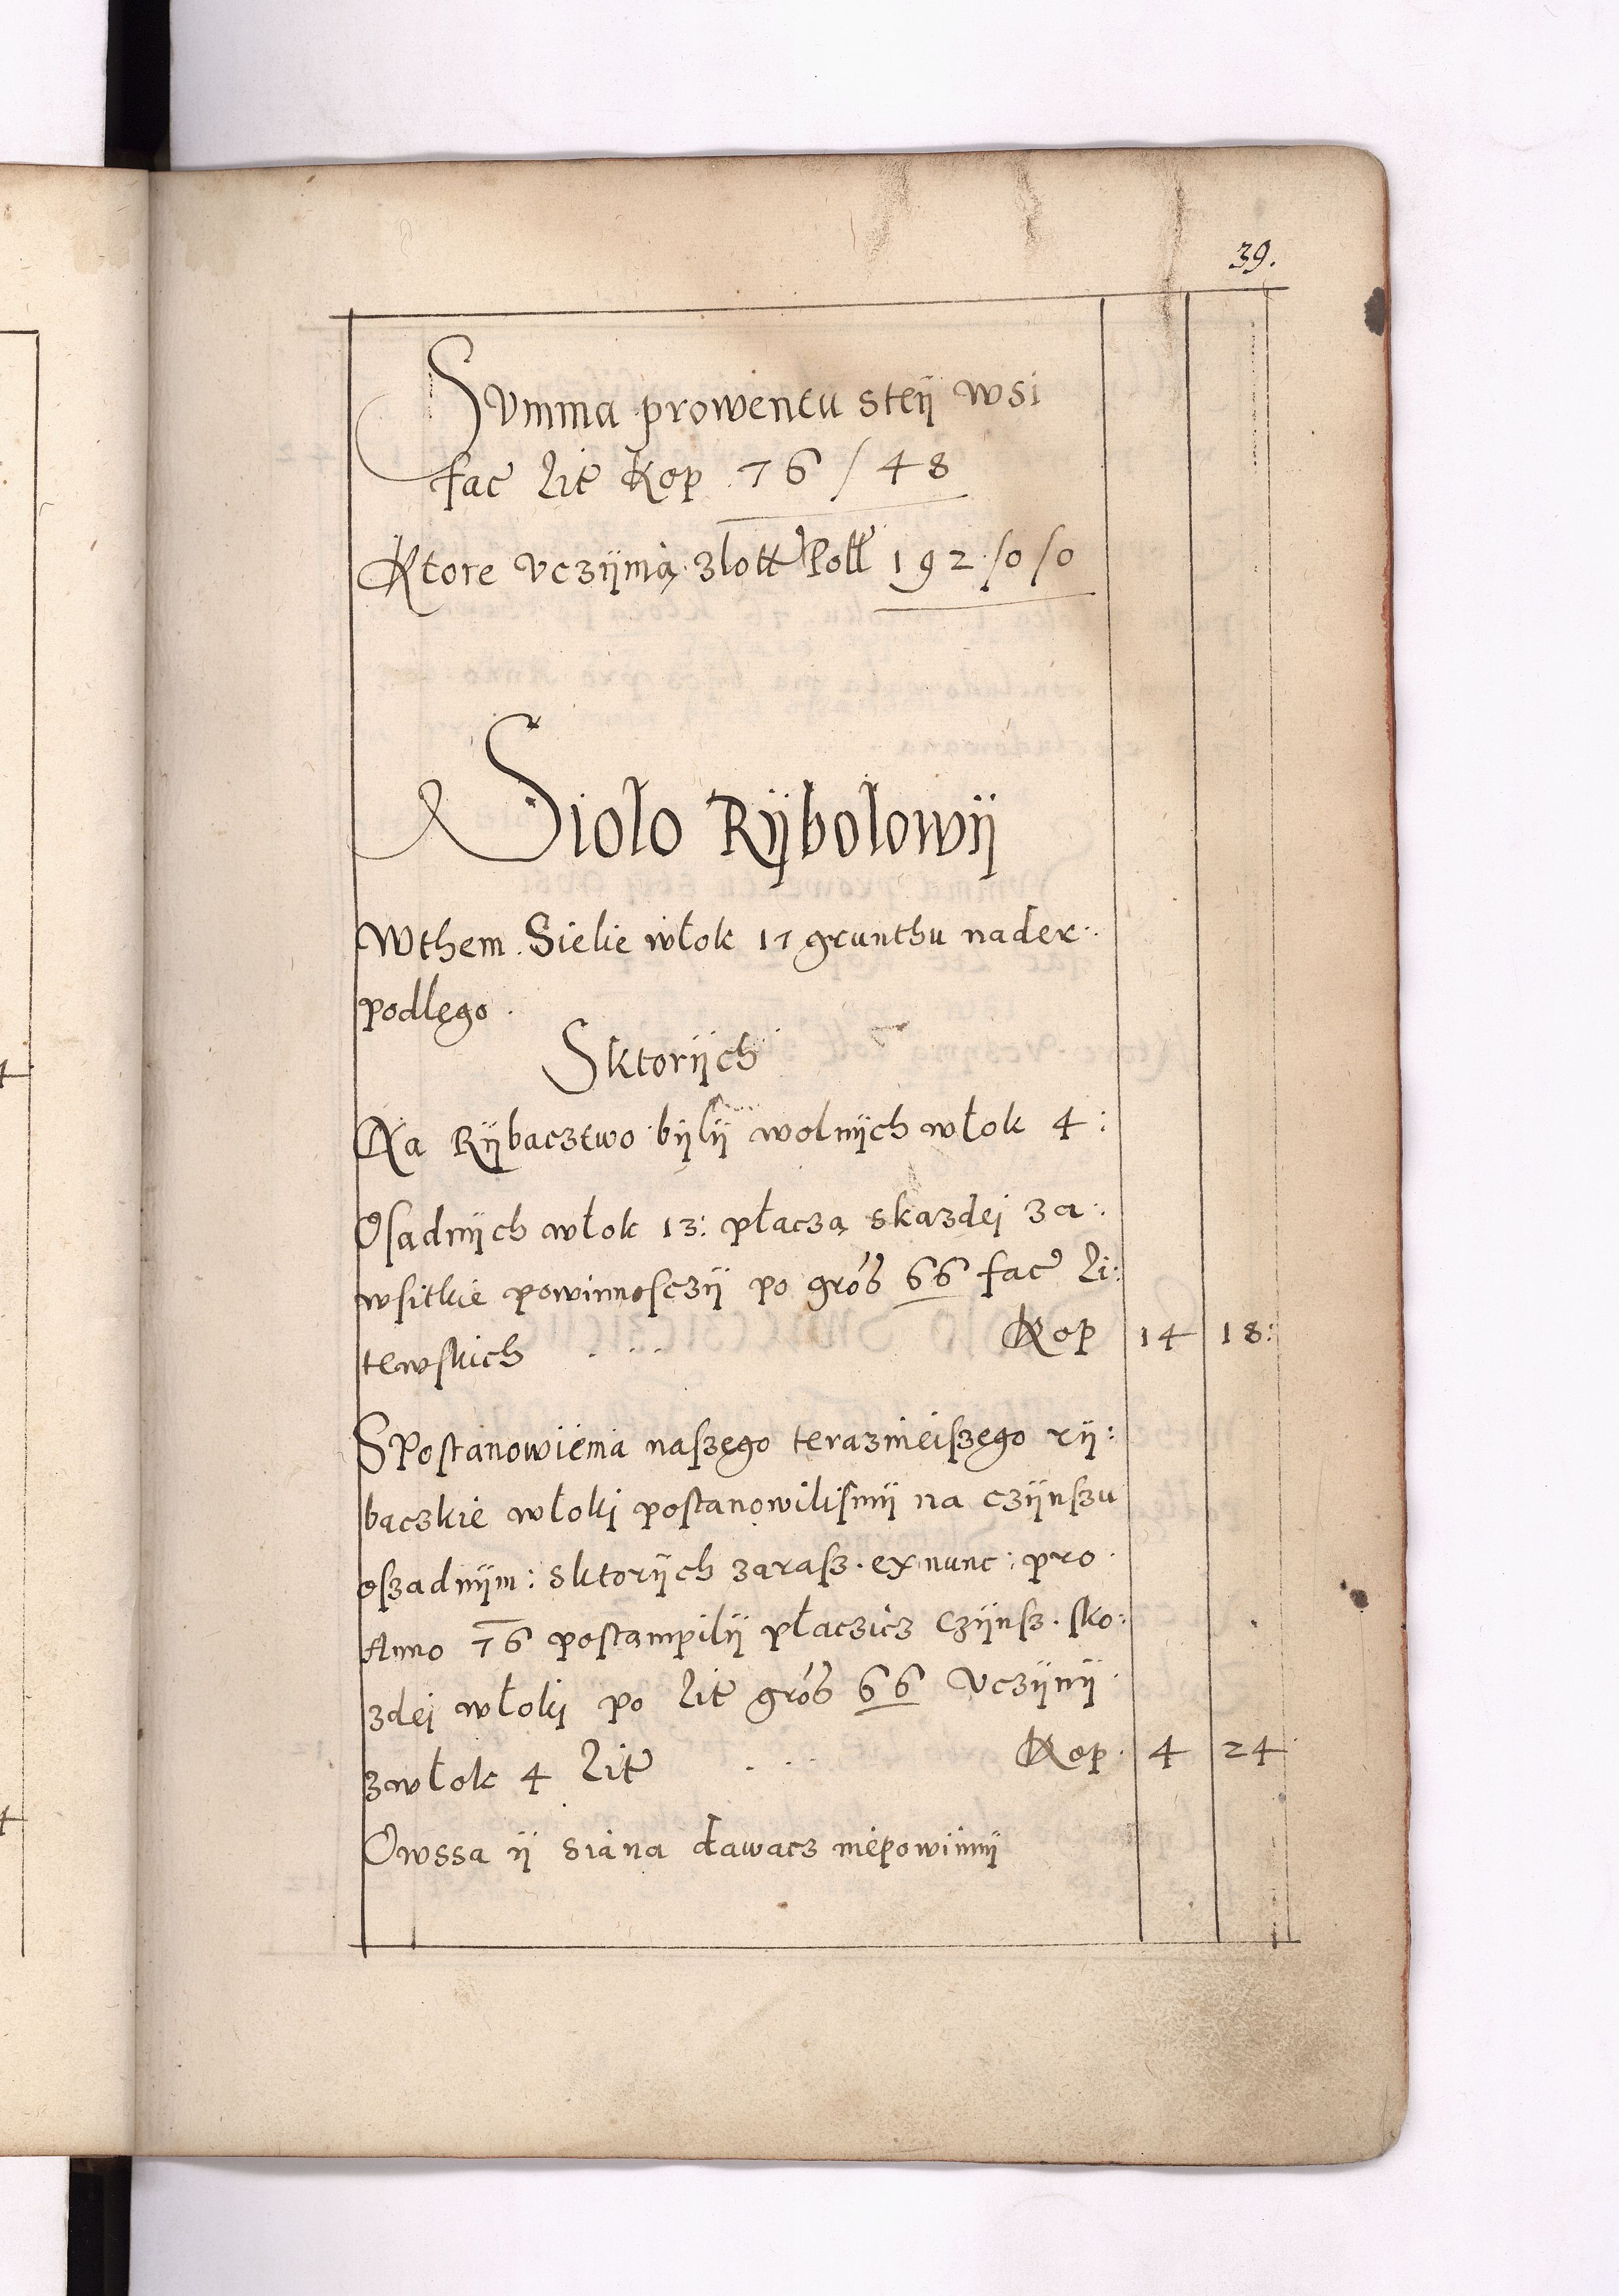 39.
Summa prowentu steÿ wsi
fac Lit kop 76 / 48
Ktore vczÿnią złott Poll 192 /0 /0
Sioło Rÿbołowÿ
Wthem Sielie włok 17 grunthu nader
podłego
Sktorÿch
Na Rÿbacztwo bÿlÿ wolnÿch włok 4:
Osadnÿch włok 13: płaczą skazdej za
wsitkie powinnosczÿ po gros 66 fac Li:
tewskich . . . Kop 14 18:
SPostanowienia naszego terazniejszego rÿ:
baczkie włoki postanowilismÿ na czÿnszu
oszadnÿm: sktorÿch zarasz ex nunc: pro
Anno 76 postąmpilÿ płaczicz Czÿnsz sko:
zdej włoki po Lit gros 66 Vczÿnÿ
zwłok 4 Lit . . . Kop 4 24
Owssa ÿ siana dawacz niepowinnÿ